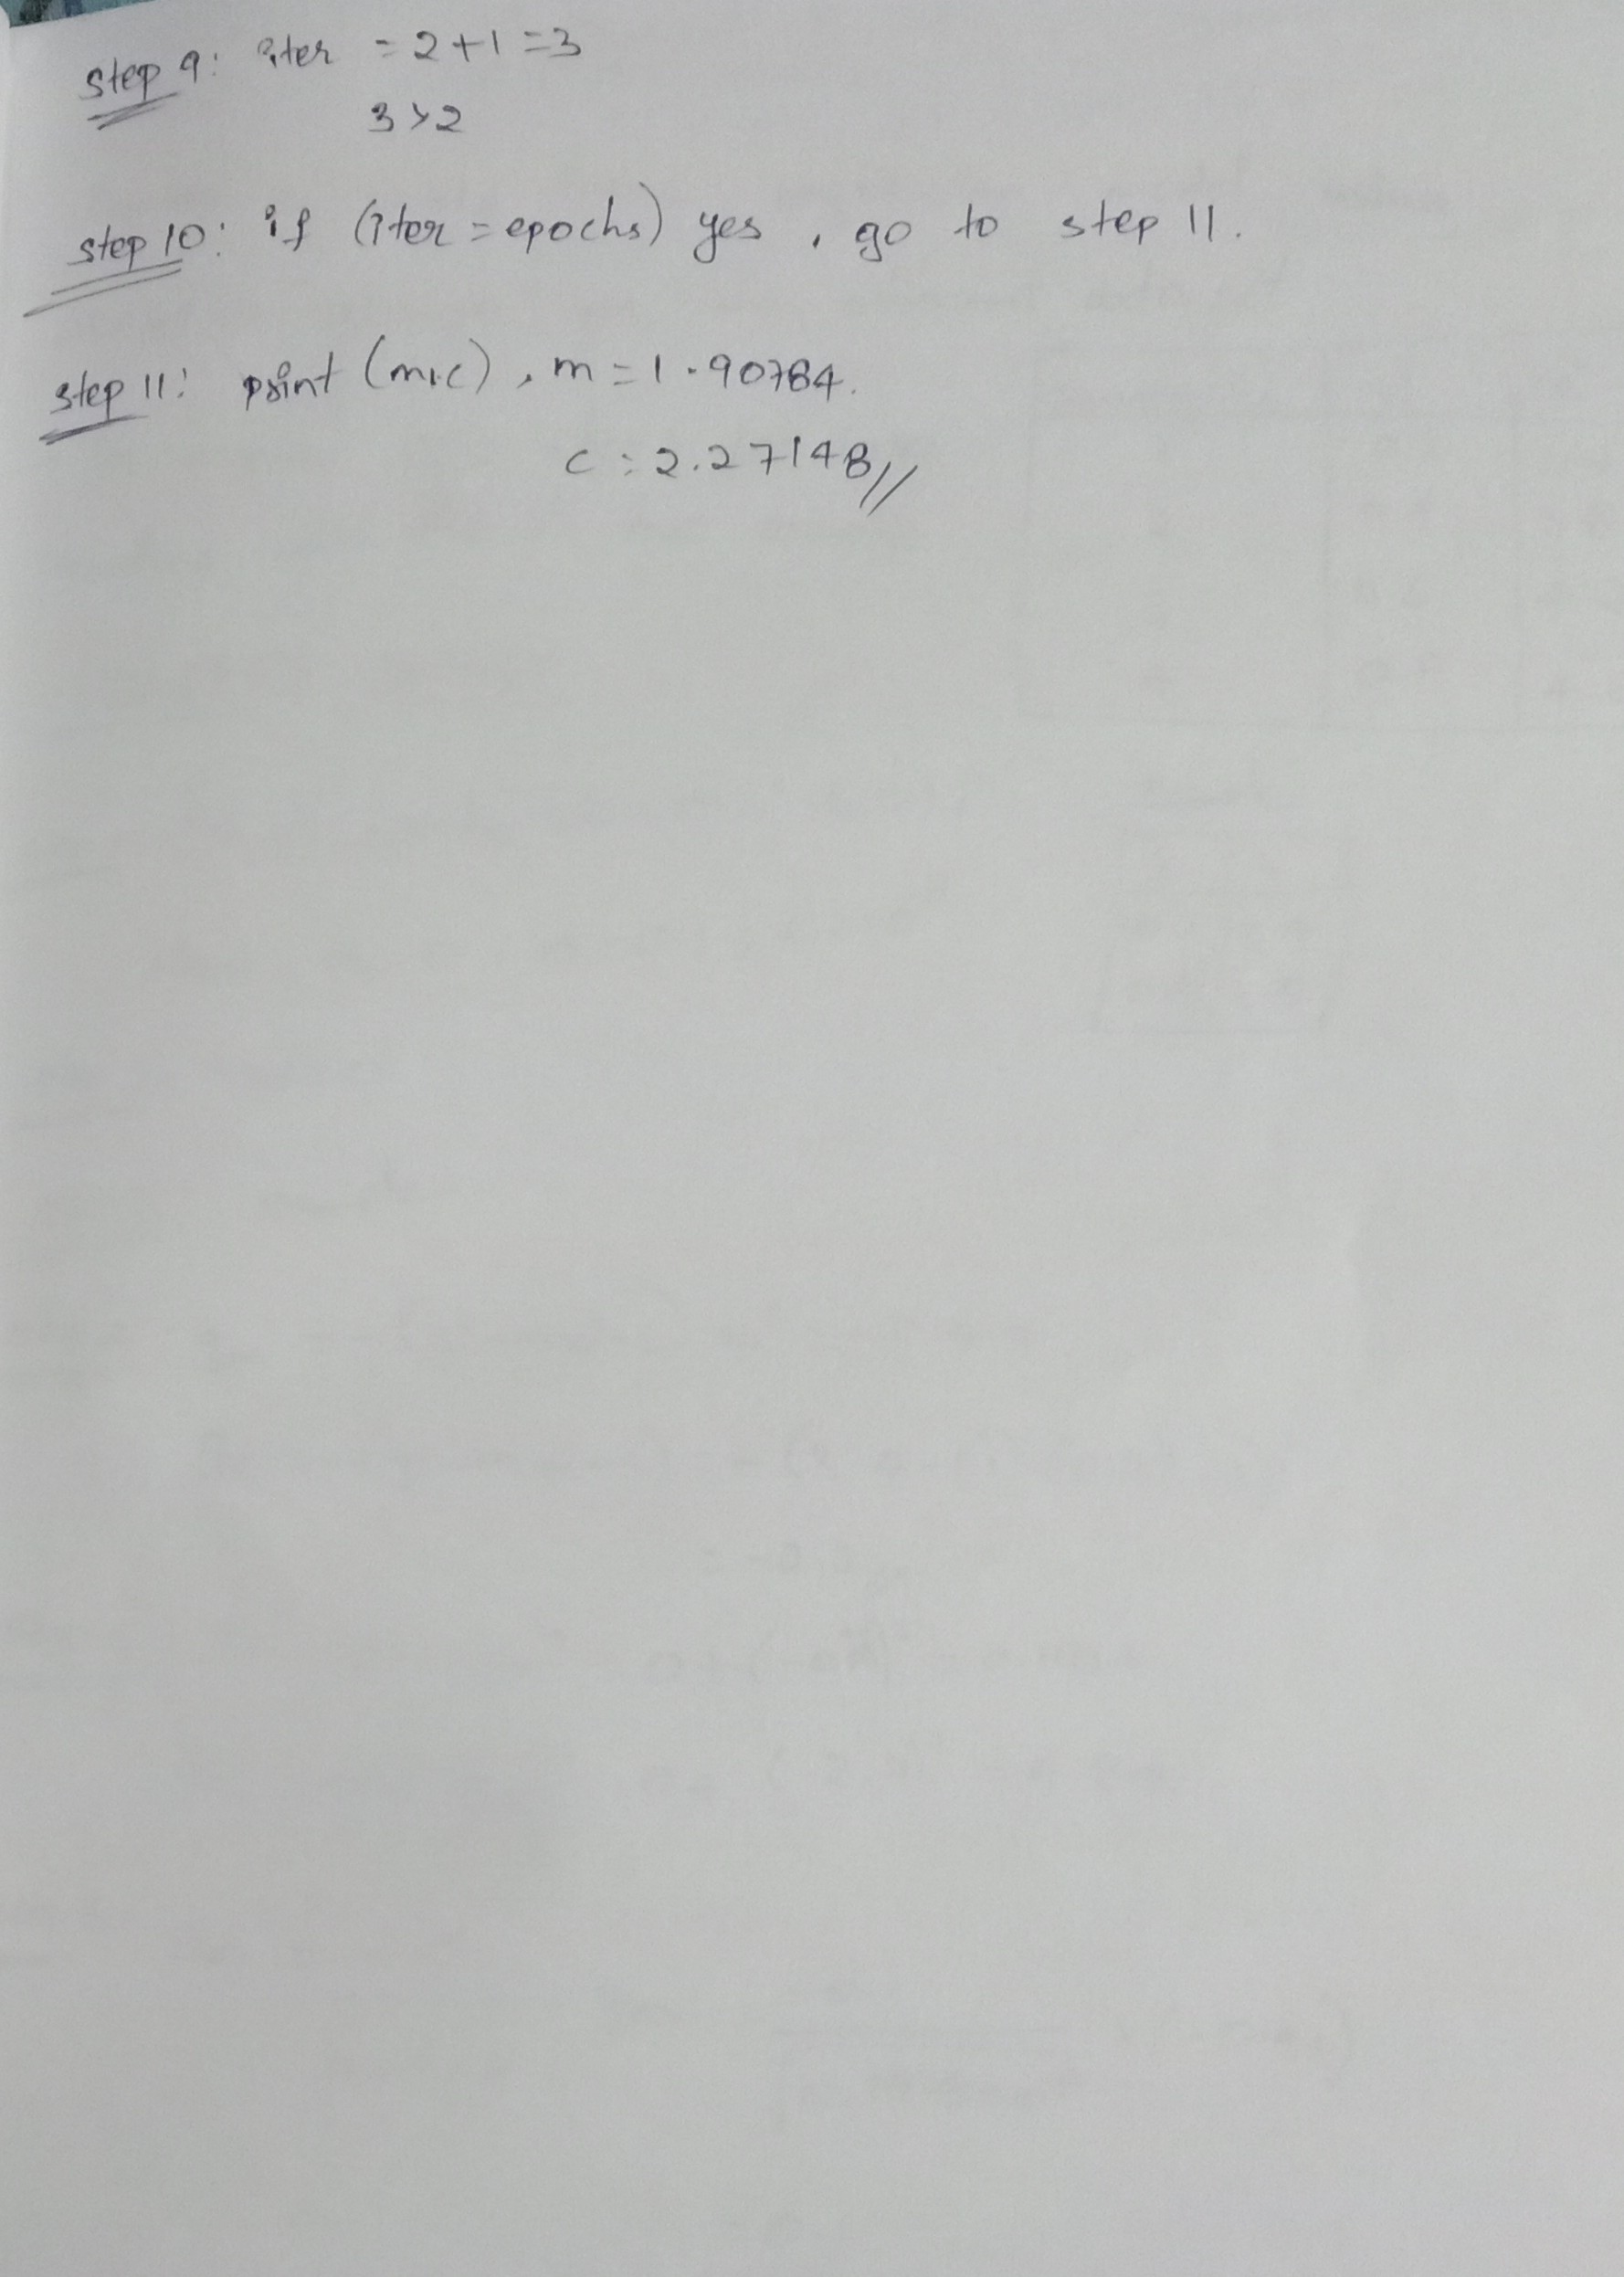 step 9: iter = 2+1=3
3>2
step 10: if (iter = epochs) yes, go to step 11.
step 11: print (m,c), m=1.90784.
c=2.27148//